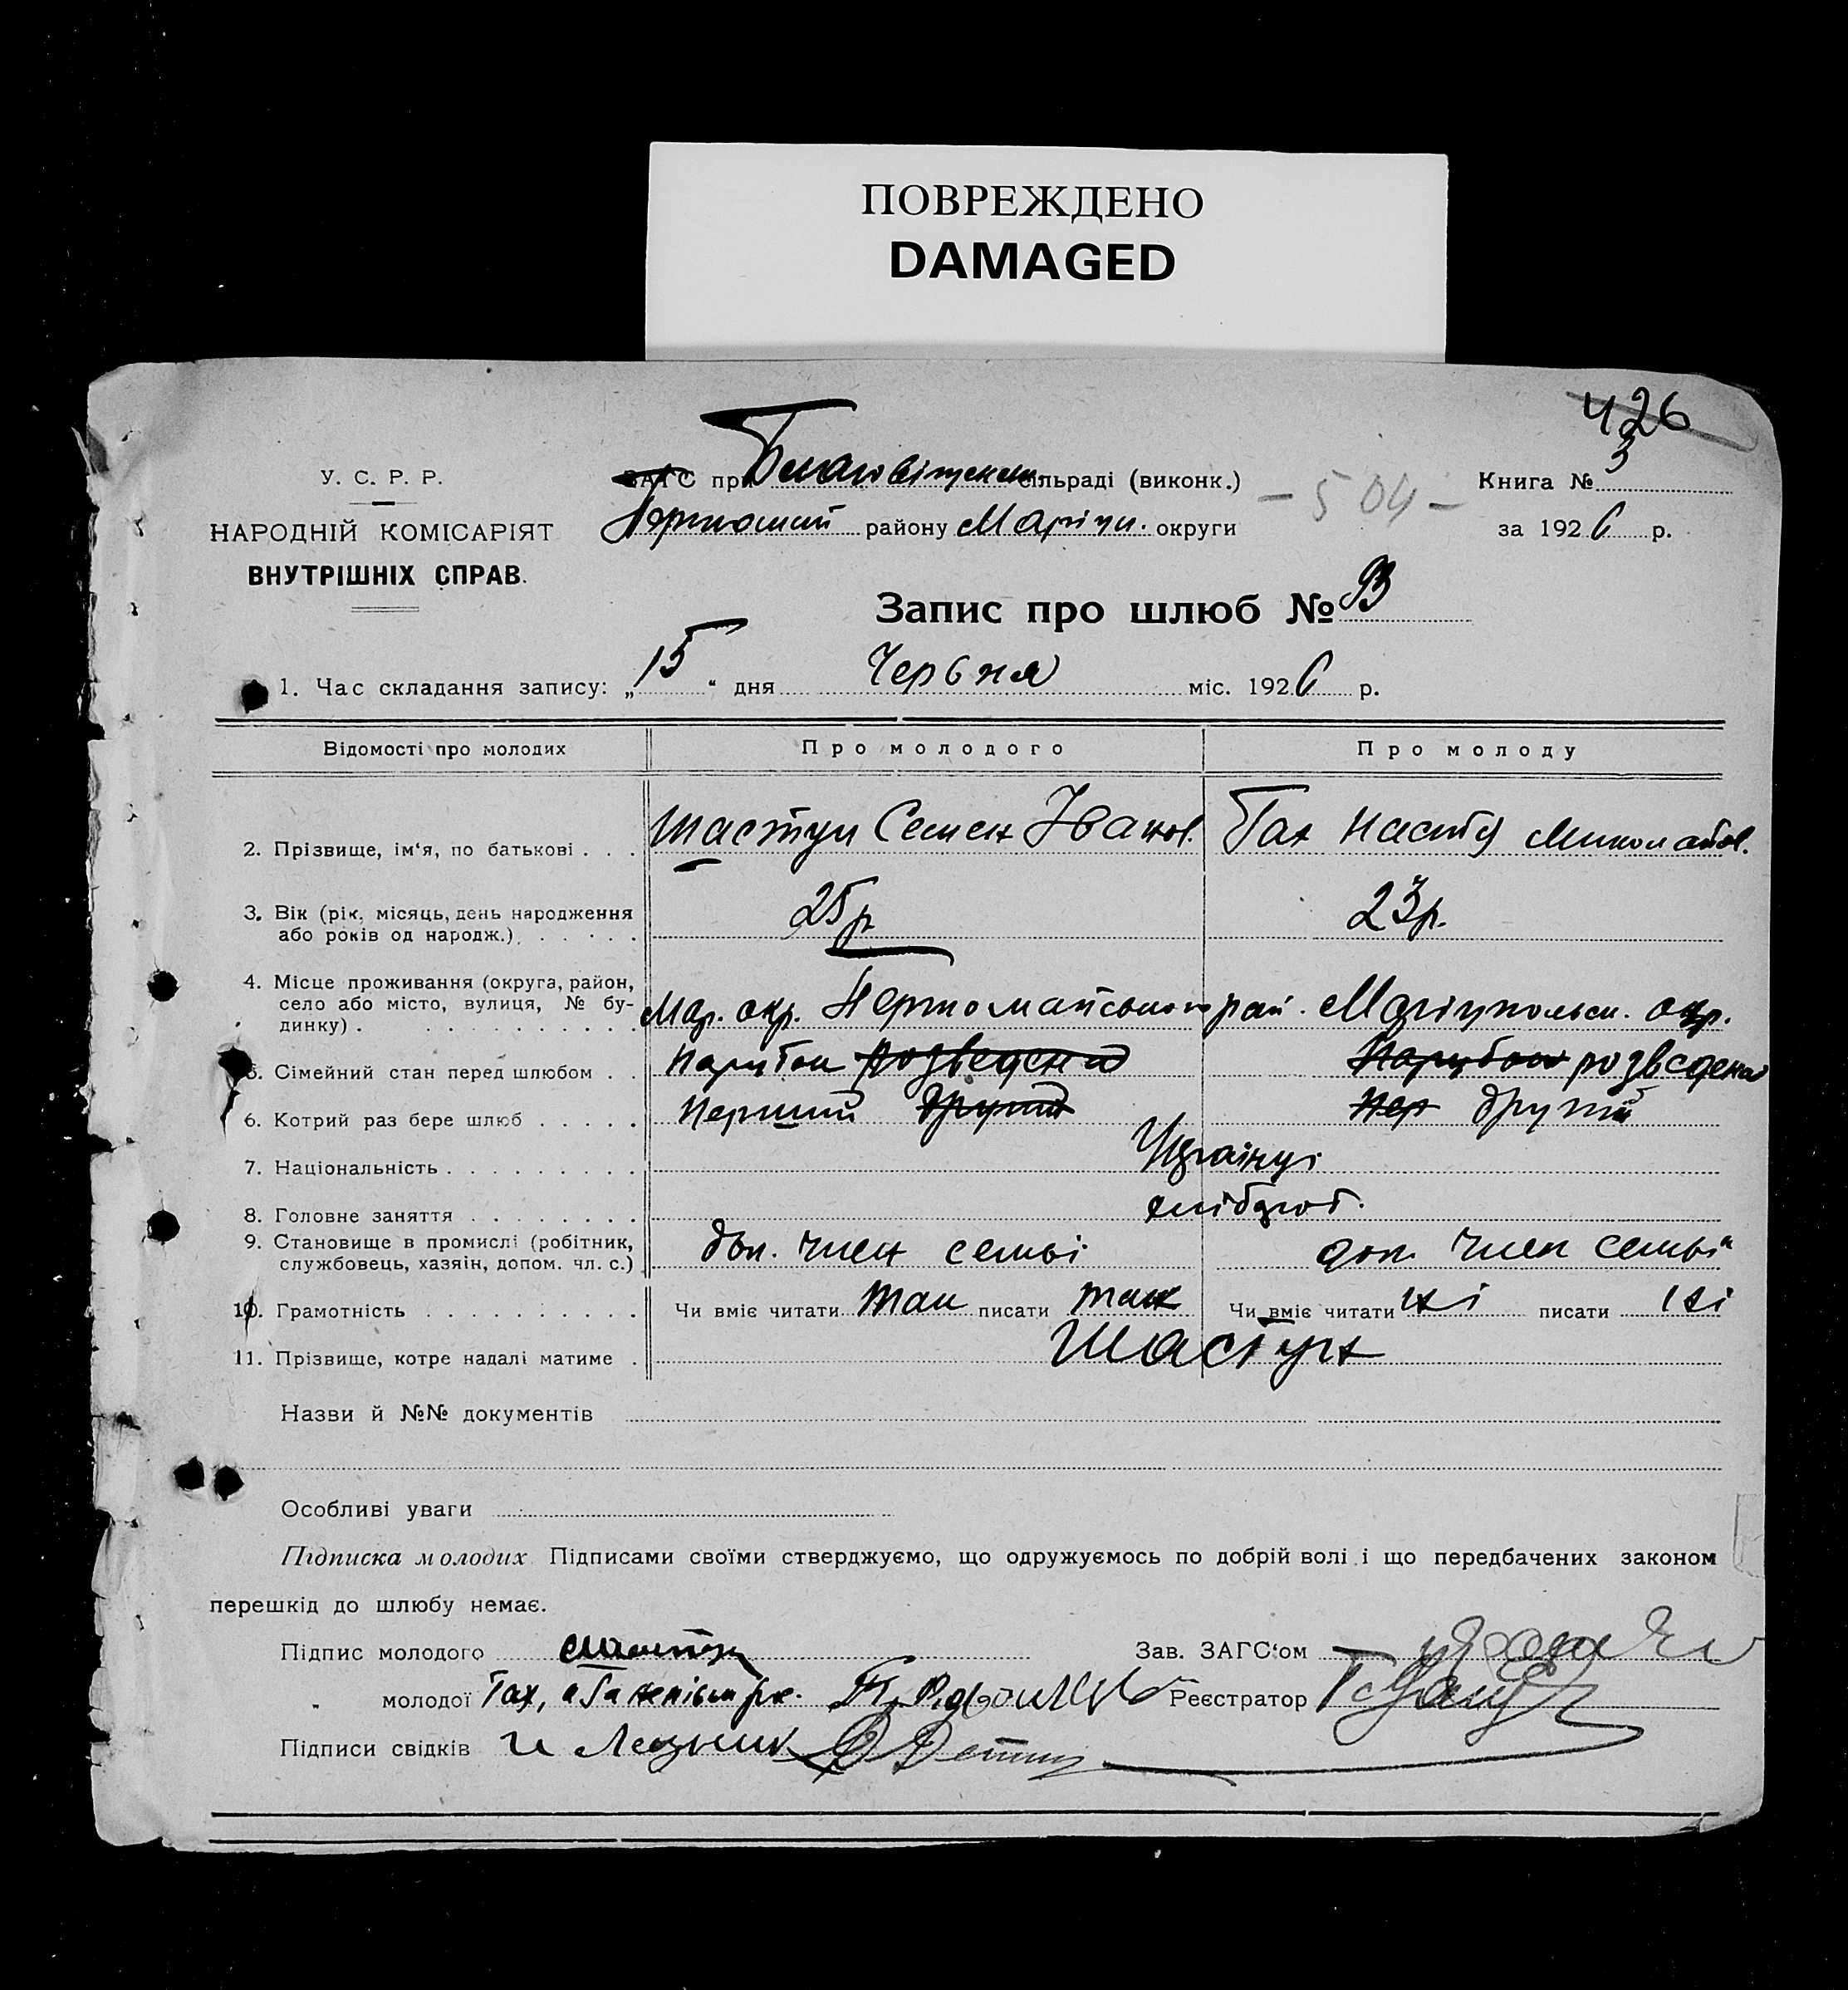 ПОВРЕЖДЕНО
DAMAGED
426
У. С. Р. Р.
НАРОДНІЙ КОМІСАРІЯТ
ВНУТРІШНІХ СПРАВ.
ЗАГС при Благовіщенськ. сільраді (виконк.)
району Маріуп. округи
- 504 -
Книга № 3
за 1926 р.
Запис про шлюб №
1. Час складання запису: „15“ дня Червня міс. 1926 р.
Відомості про молодих
Про молодого
Про молоду
2. Прізвище, ім‘я, по батькові . . .
Шастун Семен Іванов.
Гах Настя Миколаєв.
3. Вік (рік, місяць, день народження
або років од народж.) . . . . .
25 р.
23 р.
4. Місце проживання (округа, район,
село або місто, вулиця, № бу-
динку) . . . . . . . . . . .
Мар. окр. Першомайського рай. Маріупольськ. окр.
5. Сімейний стан перед шлюбом . .
Парубок розведена
Парубок розведена
6. Котрий раз бере шлюб . . . . .
Перший другий
Пер другий
7. Національність . . . . . . . . .
Українці
8. Головне заняття . . . . . . . .
хлібороб.
9. Становище в промислі (робітник,
службовець, хазяїн, допом. чл. с.)
доп. член семьі
доп. член семьі
10. Грамотність . . . . . . . . . .
Чи вміє читати так писати так
Чи вміє читати ні писати ні
11. Прізвище, котре надалі матиме .
Шастун
Назви й №№ документів
Особливі уваги
Підписка молодих Підписами своїми стверджуємо, що одружуємось по добрій волі і що передбачених законом
перешкід до шлюбу немає.
Підпис молодого
Зав. ЗАГС‘ом
„ молодої Гах, а за
Реєстратор
Підписи свідків